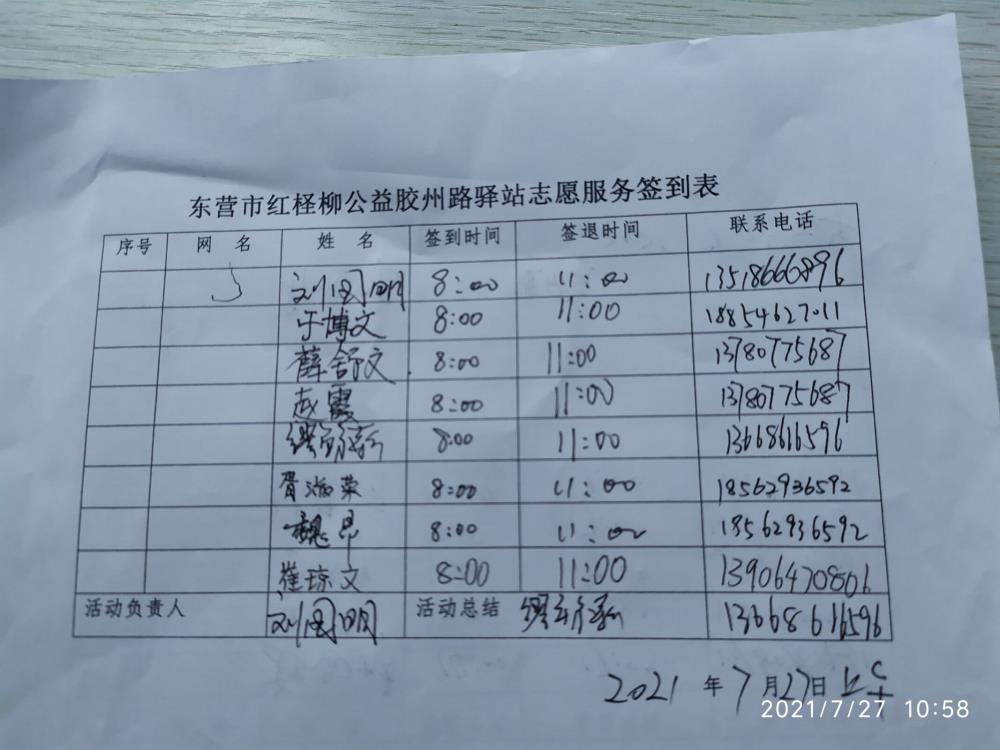 东营市红柽柳公益胶州路驿站志愿服务签到表
序号 网 名 姓 名 签到时间 签退时间 联系电话
刘国明 8:00 11:00 13518666896
于博文 8:00 11:00 18854627011
薛舒文 8:00 11:00 13780775687
赵霞 8:00 11:00 13780775687
8:00 11:00 13668616596
胥 荣 8:00 11:00 18562936592
魏昂 8:00 11:00 18562936592
崔琼文 8:00 11:00 13906470806
活动负责人 刘国明 活动总结 13668616596
2021 年 7 月 27 日 上午
2021/7/27 10:58